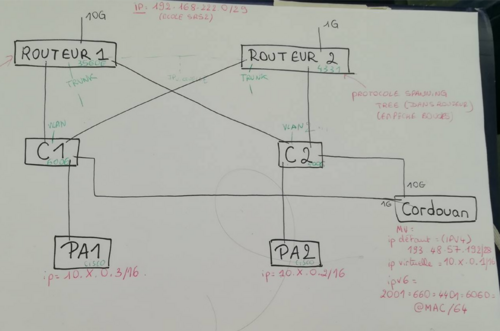 IP: 192.168.222.0/29
10G
1G
ROUTEUR 1
ROUTEUR 2
TRUNK
TRUNK
PROTOCOLE SPANNING
TREE
VLAN
VLAN
C1
C2
10G
1G
Cordouan
PA1
PA2
ip = 10.X.0.3/16
ip = 10.X.0.2/16
ip défaut = (IPV4)
ip virtuelle = 10.X.0.
ipv6 =
2001:660:4401:6060:
@MAC/64